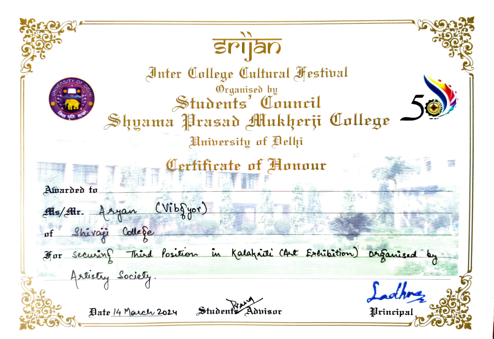 srijan
Inter College Cultural Festival
Organised by
Students' Council
Shyama Prasad Mukherji College
University of Delhi
Certificate of Honour
50
Awarded to
Ms/Mr. Aryan (Vibgyor)
of Shivaji College
For Securing Third Position in Kalakriti (Art Exhibition) organised by
Artistry Society.
Date 14 March 2024 Students' Advisor Principal